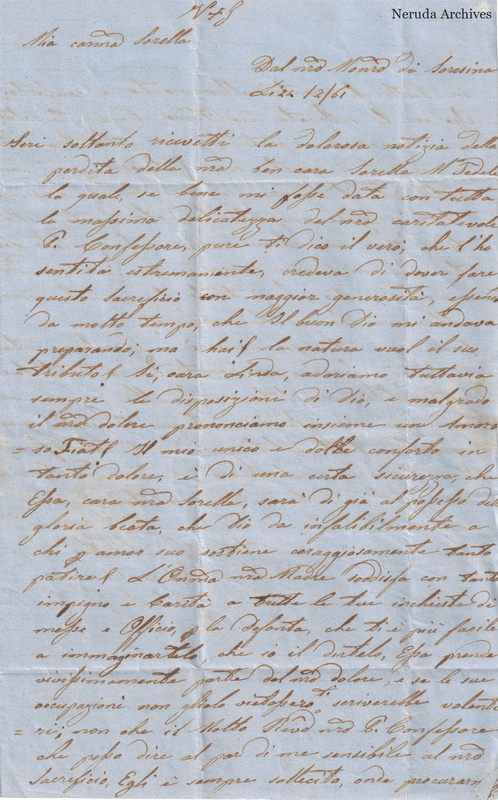 Neruda Archives
V + G
Mia carma Sorella
Dal nro Monro di Soresina
Li 12/61
Ieri soltanto ricevetti la dolorosa notizia della
perdita della nra ben cara Sorella Ma
la qual, se bene mi fosse data con tutta
la massima delicatezza del nro caritatevole
P. Confessore, pure ti dico il vero, che l'ho
sentita estremamente, credeva di dover fare
questo sacrificio con maggior generosità,
da molto tempo, che Il buon Dio mi andava
preparando, ma hai! la natura vuol il suo
tributo! Si, cara Linda, adoriamo tuttavia
sempre le disposizioni di Dio, e malgrado
il nro dolore pronunciamo insieme un Amoro
= so Fiat! Il mio unico e dolce conforto in
tanto dolore, è di una certa sicurezza, che
Essa, cara nra Sorella, sarà di già al possesso della
gloria beata, che Dio da infallibilmente a
chi p amor suo sostiene coraggiosamente tanto
patire! L'Onma nra Madre soddisfa con tant
impegno e Carità a tutte le tue inchieste di
messe e Officio, p la defonta, che ti è più facile
a immaginartelo, che io il dirtelo, Essa prende
vivissimamente parte del nro dolore, e se le sue
occupazioni non glielo vietassero ti scriverebbe volenti
= ri; non che il Molto Revdo nro P. Confessore
che posso dire al par di me sensibile al nro
sacrificio, Egli è sempre sollecito, onde procurarmi